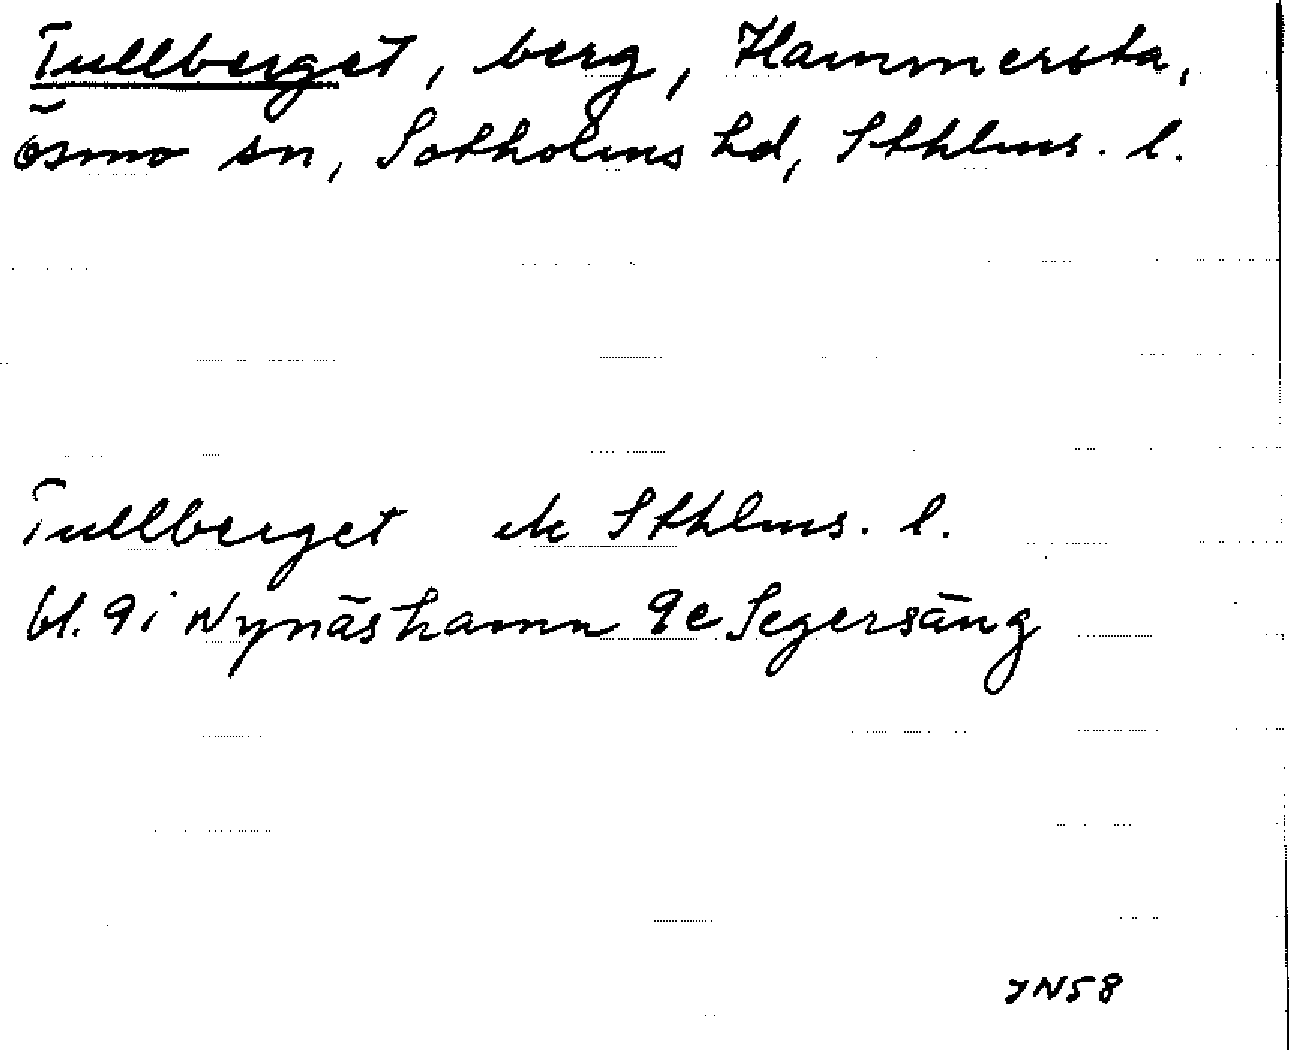 Tullberget, berg, Hammersta,
Ösmo sn, Sotholms hd, Sthlms. l.
Tullberget ek Sthlms. l.
bl. 9i Nynäshamn 9e Segersäng
JN58